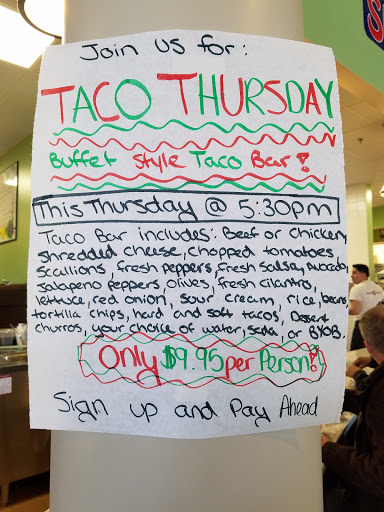 Join us for:
TACO THURSDAY
Buffet Style Taco Bar!
This Thursday @ 5:30pm
Taco Bar includes: Beef or Chicken,
shredded cheese, chopped tomatoes,
scallions, fresh peppers, fresh salsa, avocado,
jalapeno peppers, olives, fresh cilantro,
lettuce, red onion, sour cream, rice, beans,
tortilla chips, hard and soft tacos, Dessert
churros, your choice of water, soda or BYOB.
Only $9.95 per Person!
Sign up and Pay Ahead